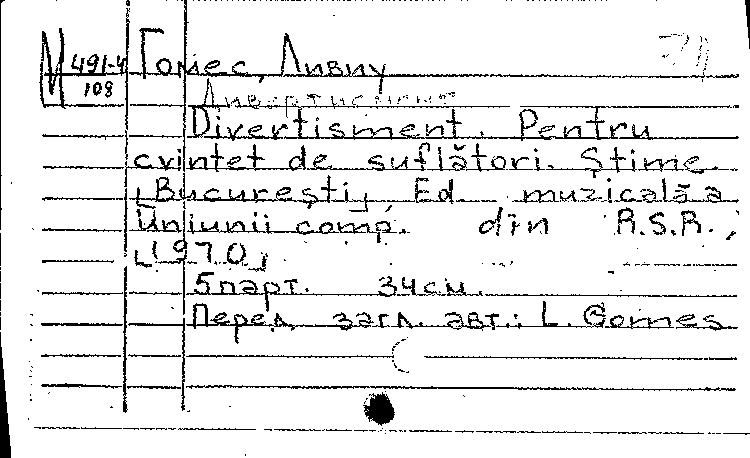 М 491-4 Гомес, Ливиу
108
Дивертисмент
Divertisment. Pentru
cvintet de suflători. Ştime.
[Bucureşti], Ed. muzicală a
Uniunii comp. din R.S.R.,
[1970]
5 парт. 34 см.
Перед загл. авт.: L. Gomes